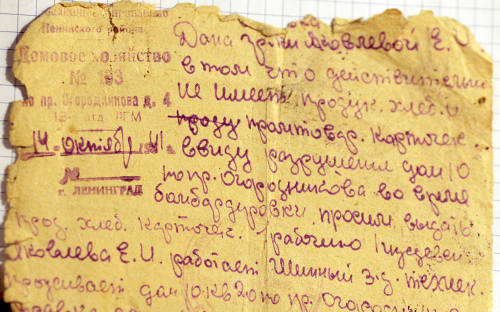 Ленинского района
Домовое хозяйство
№ 193
по пр. Огородникова д. 4
14 октября 41 г.
№
г. ЛЕНИНГРАД
Дана гр-ки Яковлевой Е. И.
в том что она действительно
не имеет продук. хлеб. и
проду промтовар. карточек
ввиду разрушения дом 10
по пр. Огородникова во время
бомбардировки, просим выдать
прод. хлеб. карточек. 1 рабочию 1
Яковлева Е. И. работает Шинный з-д. технек.
проживает дом 10 кв 20 по пр. Огородник